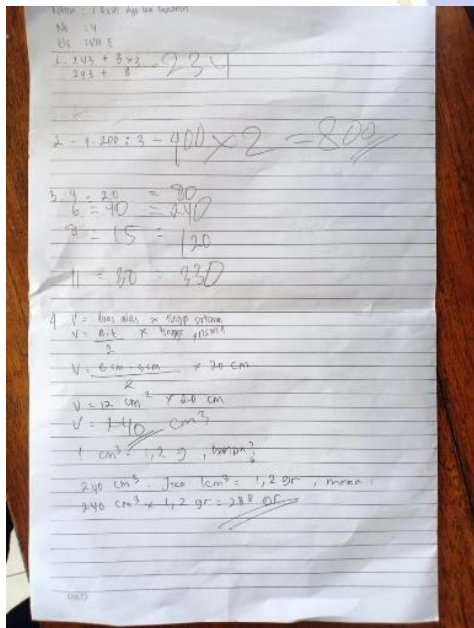 No : 4
Kls : VIII E
1. 243 + 3 x 2 = 234
243 + 3
2 - 1.200 : 3 = 400 x 2 = 800
3. 4 = 20 = 80
6 = 40 = 240
8 = 15 = 120
11 = 30 = 330
4 V = luas alas x tinggi prisma
V = a.t x tinggi prisma
2
V = 6 cm . 4 cm x 20 cm
2
V = 12 cm² x 20 cm
V = 240 cm³
1 cm³ = 1,2 g , berapa?
240 cm³ . Jika 1cm³ = 1,2 gr , maka :
240 cm³ x 1,2 gr = 288 gr